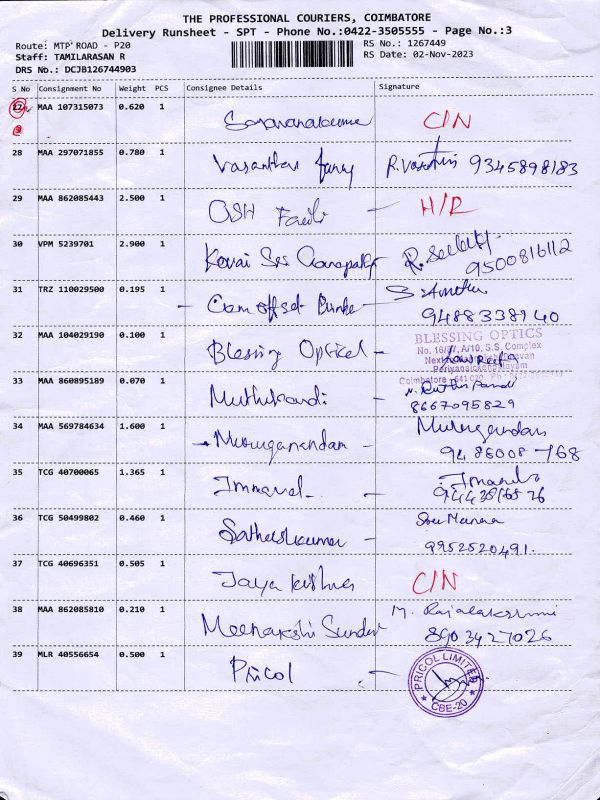 THE PROFESSIONAL COURIERS, COIMBATORE
Delivery Runsheet - SPT - Phone No.:0422-3505555 - Page No.:3
Route: MTP ROAD - P20
RS No.: 1267449
Staff: TAMILARASAN R
RS Date: 02-Nov-2023
DRS No.: DCJB126744903
S No Consignment No Weight PCS Consignee Details Signature
27 MAA 107315073 0.620 1 C/N
28 MAA 297071855 0.780 1 Vasantha 9345898183
29 MAA 862085443 2.500 1 H/R
30 VPM 5239701 2.900 1 Kovai Sri Ganapathy
9500816112
31 TRZ 110029500 0.195 1 Com offset
9488338940
32 MAA 104029190 0.100 1 Blessing Optical -
BLESSING OPTICS
No. 16/87, A/10, S.S. Complex
Periyanaickenpalayam
33 MAA 860895189 0.070 1 Muthukandi -
8667095829
34 MAA 569784634 1.600 1 Muruganandam -
35 TCG 40700065 1.365 1 Immanuel -
36 TCG 50499802 0.460 1 Sathishkumar -
9952520491.
37 TCG 40696351 0.505 1 Jaya C/N
38 MAA 862085810 0.210 1 Meenakshi Sundar M. Rajalakshmi
8903427026
39 MLR 40556654 0.500 1 Pricol -
PRICOL LIMITED
CBE-20